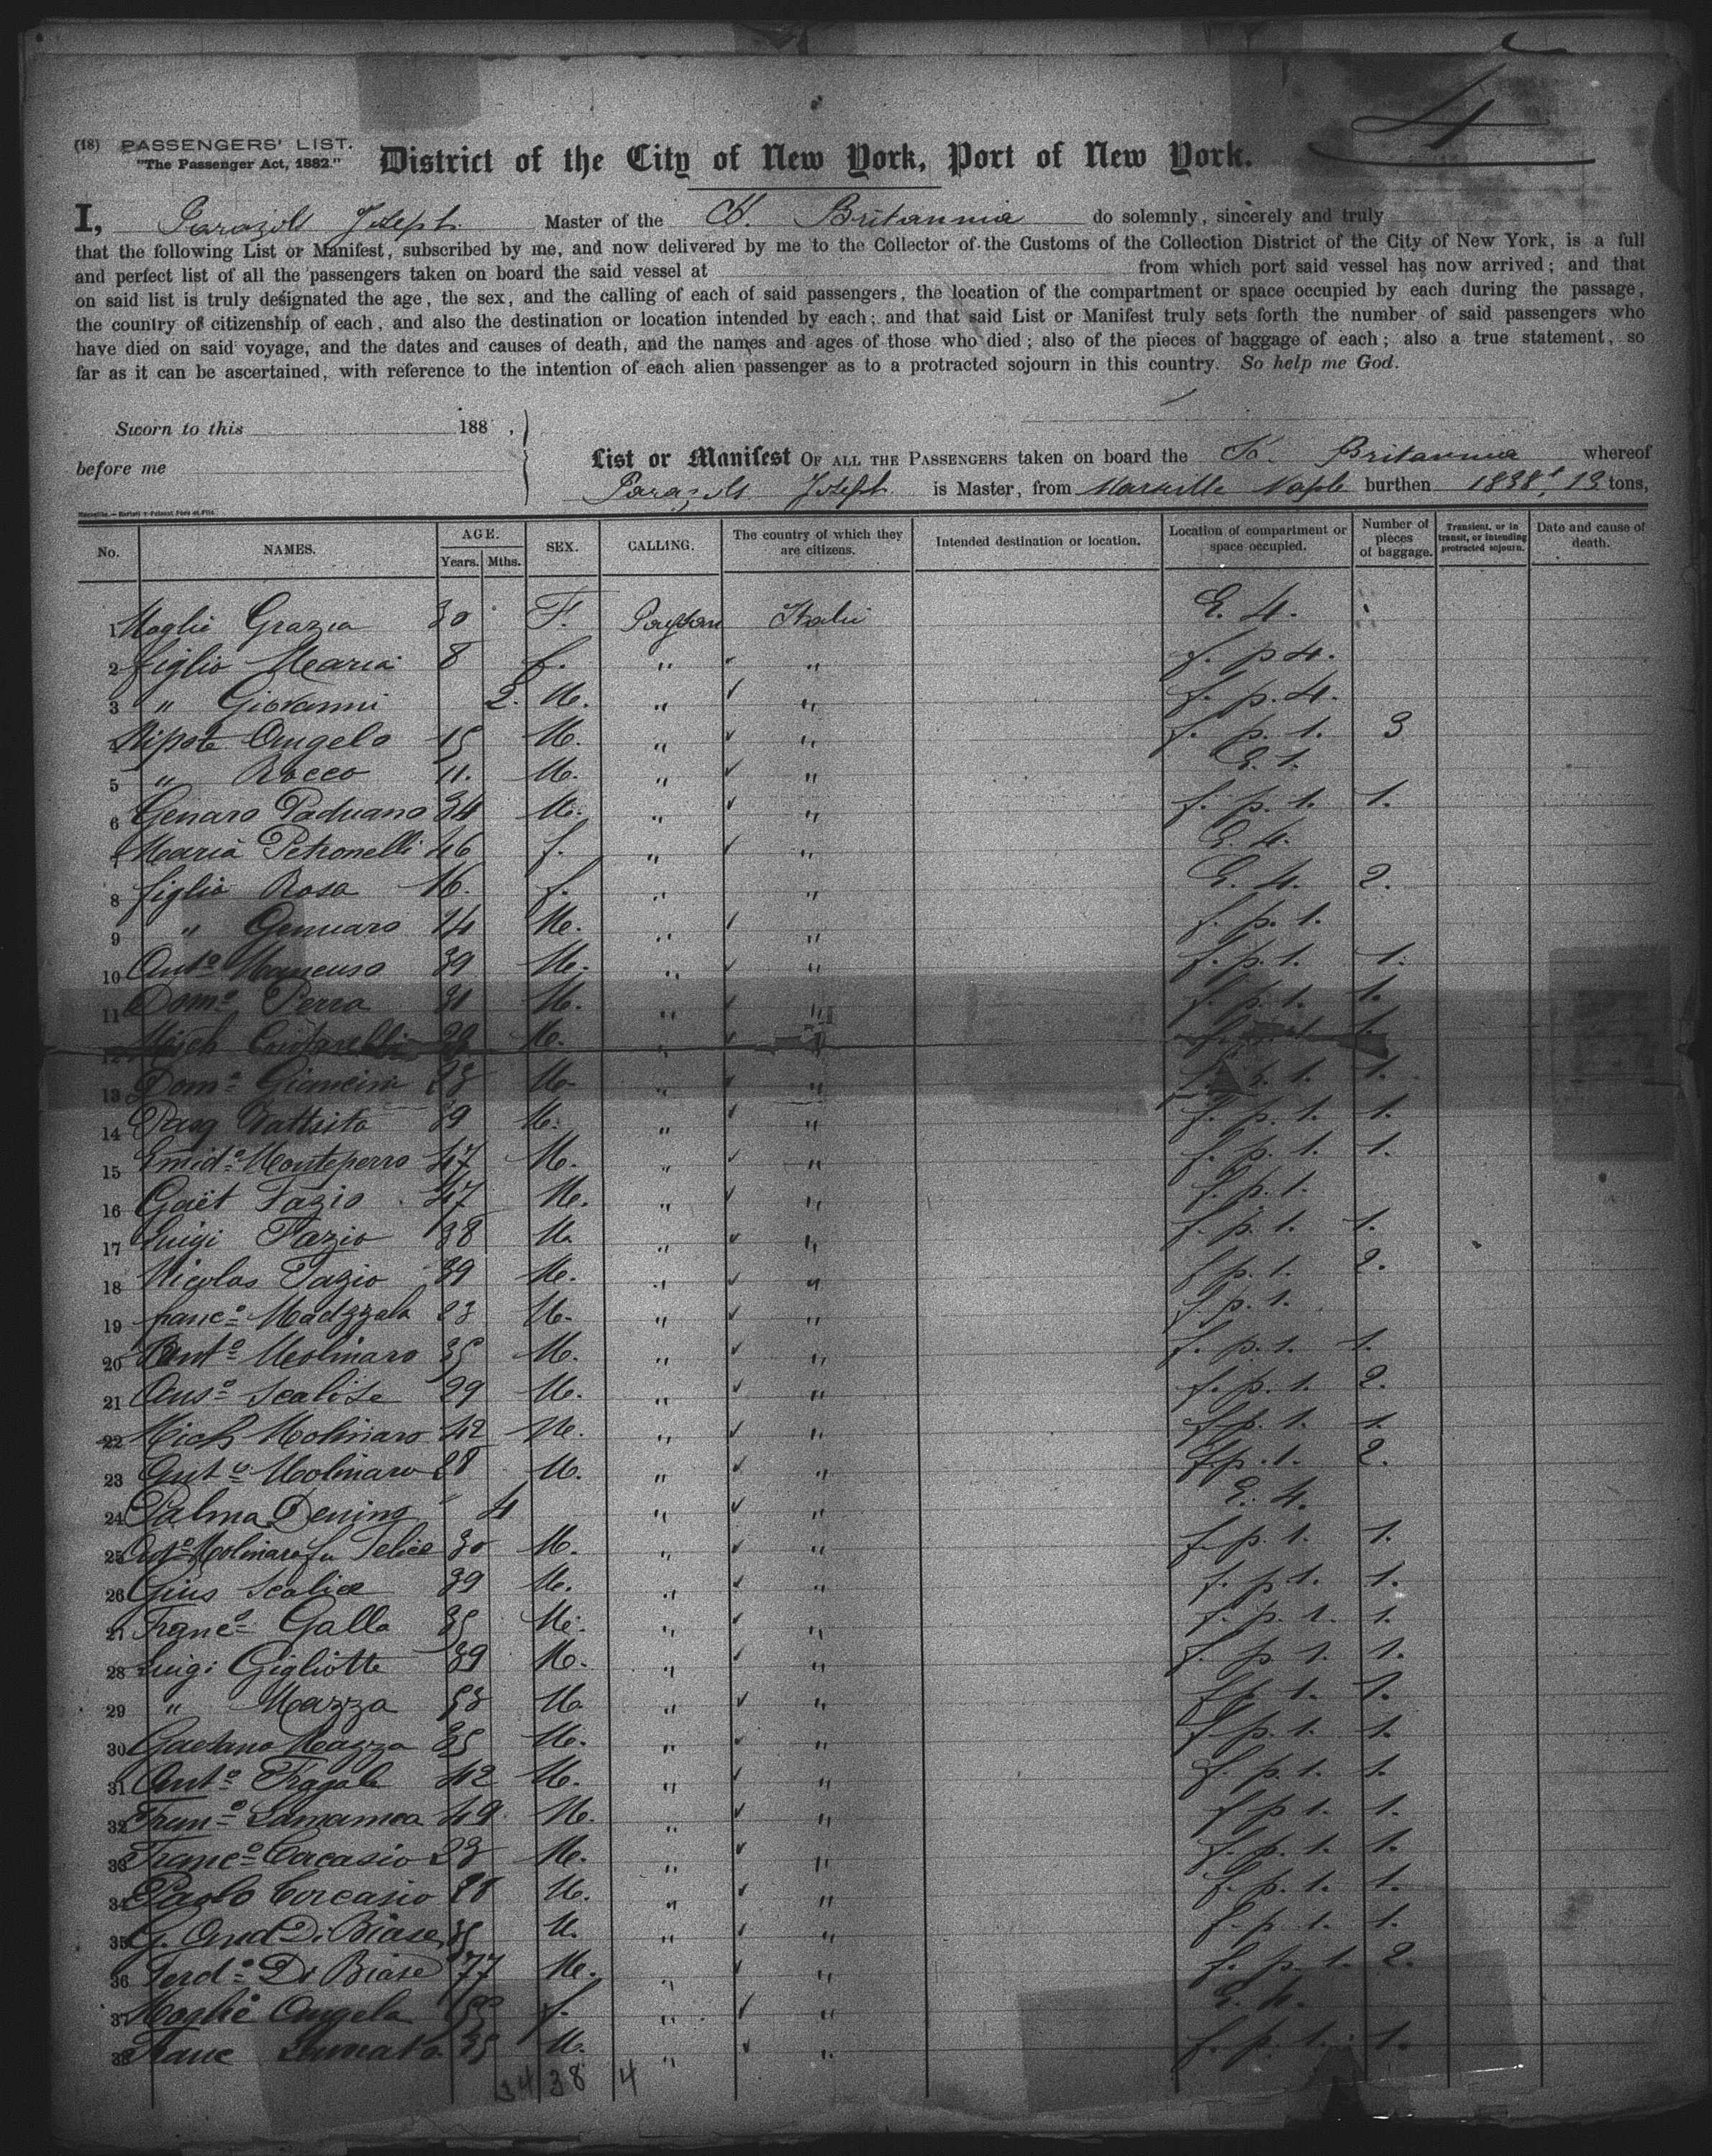 4
(18) PASSENGERS' LIST.
"The Passenger Act, 1882."
District of the City of New York, Port of New York.
I, Joseph Master of the Britannia do solemnly, sincerely and truly
that the following List or Manifest, subscribed by me, and now delivered by me to the Collector of the Customs of the Collection District of the City of New York, is a full
and perfect list of all the passengers taken on board the said vessel at from which port said vessel has now arrived; and that
on said list is truly designated the age, the sex, and the calling of each of said passengers, the location of the compartment or space occupied by each during the passage,
the country of citizenship of each, and also the destination or location intended by each; and that said List or Manifest truly sets forth the number of said passengers who
have died on said voyage, and the dates and causes of death, and the names and ages of those who died; also of the pieces of baggage of each; also a true statement, so
far as it can be ascertained, with reference to the intention of each alien passenger as to a protracted sojourn in this country. So help me God.
Sworn to this 188 ,
before me
List or Manifest OF ALL THE PASSENGERS taken on board the Britannia whereof
Joseph is Master, from Marseille Naple burthen tons,
No. NAMES. AGE. Years. Mths. SEX. CALLING. The country of which they are citizens. Intended destination or location. Location of compartment or space occupied. Number of pieces of baggage. Transient, or in transit, or intending protracted sojourn. Date and cause of death.
1 Moglie Grazia 30 F. Italie E. 4.
2 figlio Maria 8 f. " " f. p 4.
3 " Giovanni 2. M. " " f. p. 4.
4 Nipote Angelo 15 M. " " f. p. 1. 3
5 " Rocco 11. M. " " E. 1.
6 Genaro Paduano 34 M. " " f. p. 1. 1.
7 Maria Petronelli 46 f. " " E. 4.
8 figlia Rosa 16. f. " " E. 4. 2.
9 " Genuaro 14 M. " " f. p. 1.
10 Anto Mancuso 39 M. " " f. p. 1. 1.
11 Domo Perra 31 M. " " f. p. 1. 1.
12 Mich M. " " 1.
13 Domo 23 M. " " p. 1. 1.
14 Pasq Battista 39 M. " " f. p. 1. 1.
15 Emido Monteperro 47 M. " " f. p. 1. 1.
16 Gaët Fazio 47 M. " " f. p. 1.
17 Luigi Fazio 38 M. " " f. p. 1. 1.
18 Nicolas Fazio 39 M. " " f p. 1. 2.
19 franco 23 M. " " f. p. 1.
20 Anto Molinaro 35 M. " " f. p. 1. 1.
21 Scalise 29 M. " " f. p. 1. 2.
22 Mich Molinaro 42 M. " " f p. 1. 1.
23 Anto Molinaro 28 M. " " f p. 1. 2.
24 Palma 4 " " E. 4.
25 Anto Molinaro fu Felice 30 M. " " f. p. 1. 1.
26 Gius Scalice 39 M. " " f. p 1. 1.
27 Franco Gallo 35 M. " " f. p. 1. 1.
28 Luigi Gigliotte 39 M. " " f p 1. 1.
29 " Mazza 53 M. " " f p. 1. 1.
30 Gaetano Mazza 35 M. " " f p. 1. 1.
31 Anto Fragale 42 M. " " f. p. 1. 1.
32 49 M. " " f p 1. 1.
33 Franco Corcasio 23 M. " " f. p. 1. 1.
34 Paolo Corcasio 28 M. " " f. p. 1. 1.
35 G. And Di Biase 35 M. " " f. p 1. 1.
36 Ferdo Di Biase 77 M. " " f. p. 1. 2.
37 Moglie Angela f. " " E. 4.
38 Franc 35 M. " " f. p. 1. 1.
34 38 4